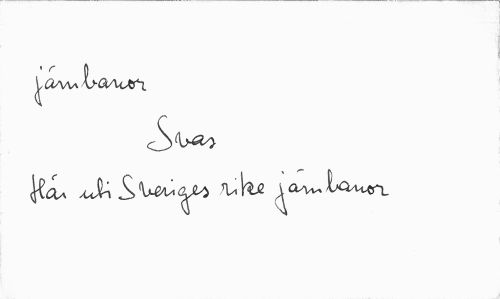 järnbanor
Svas
Här uti Sveriges rike järnbanor